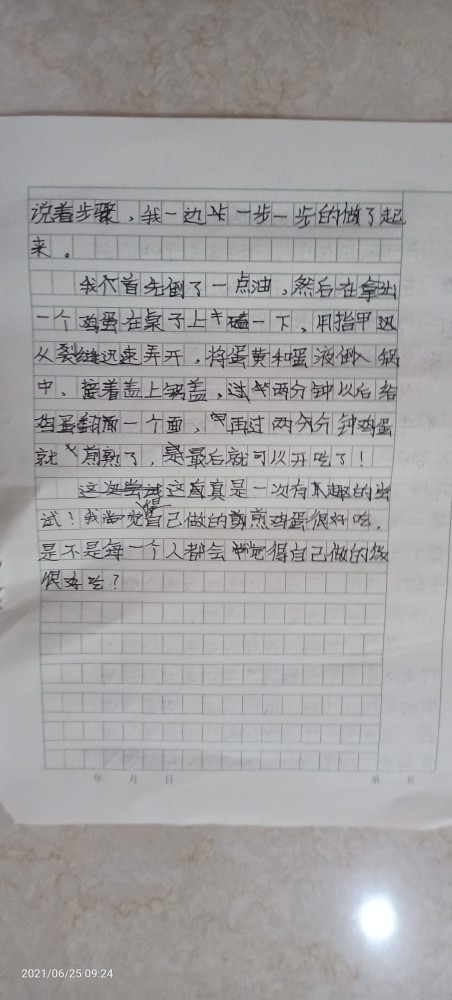 说着步骤，我一边一步一步的做了起
来。
我首先倒了一点油，然后在拿出
一个鸡蛋在桌子上磕一下，用指甲
从裂缝迅速弄开，将蛋黄和蛋液倒入锅
中，接着盖上锅盖，过两分钟以后给
鸡蛋翻面一个面，再过两分分钟鸡蛋
就煎熟了，最后就可以开吃了！
这真是一次有趣的尝
试！我觉得自己做的煎鸡蛋很好吃，
是不是每一个人都会觉得自己做的饭
很好吃？
年 月 日 第 页
2021/06/25 09:24